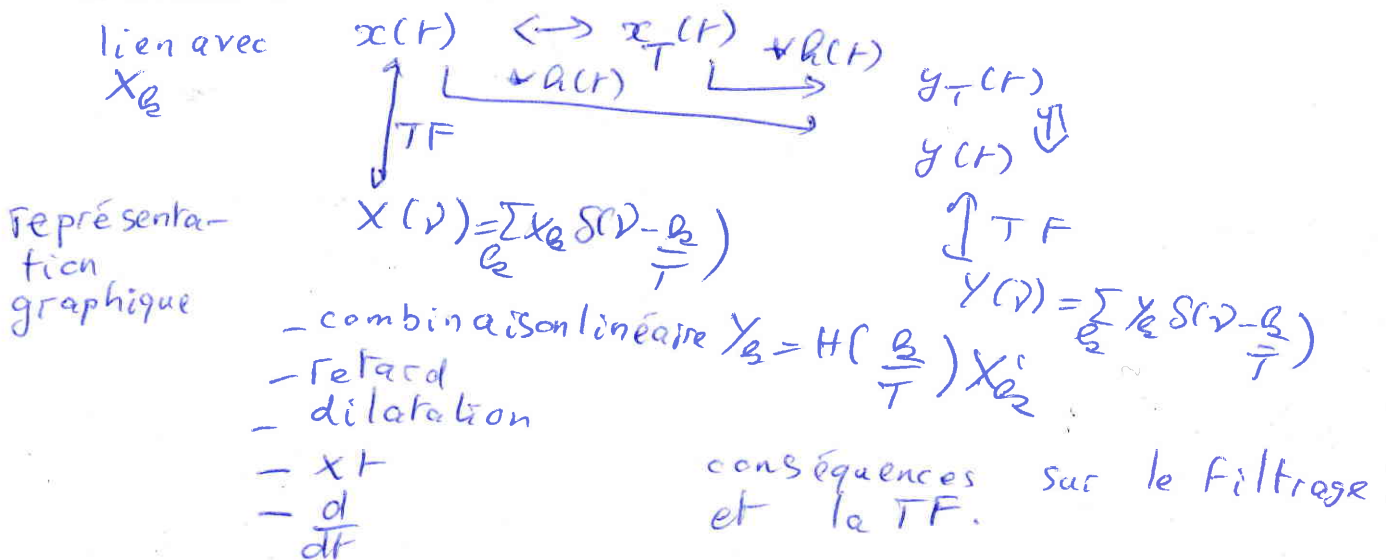 lien avec X_k
x(t) ↔ x_T(t) *h(t)
*h(t) y_T(t)
TF y(t)
représenta-
tion
graphique
X(ν) = Σ_k X_k δ(ν - k/T)
TF
Y(ν) = Σ_k Y_k δ(ν - k/T)
- combinaison linéaire Y_k = H(k/T) X_k
- retard
- dilatation
- x t
- d/dt
conséquences sur le filtrage
et la TF.